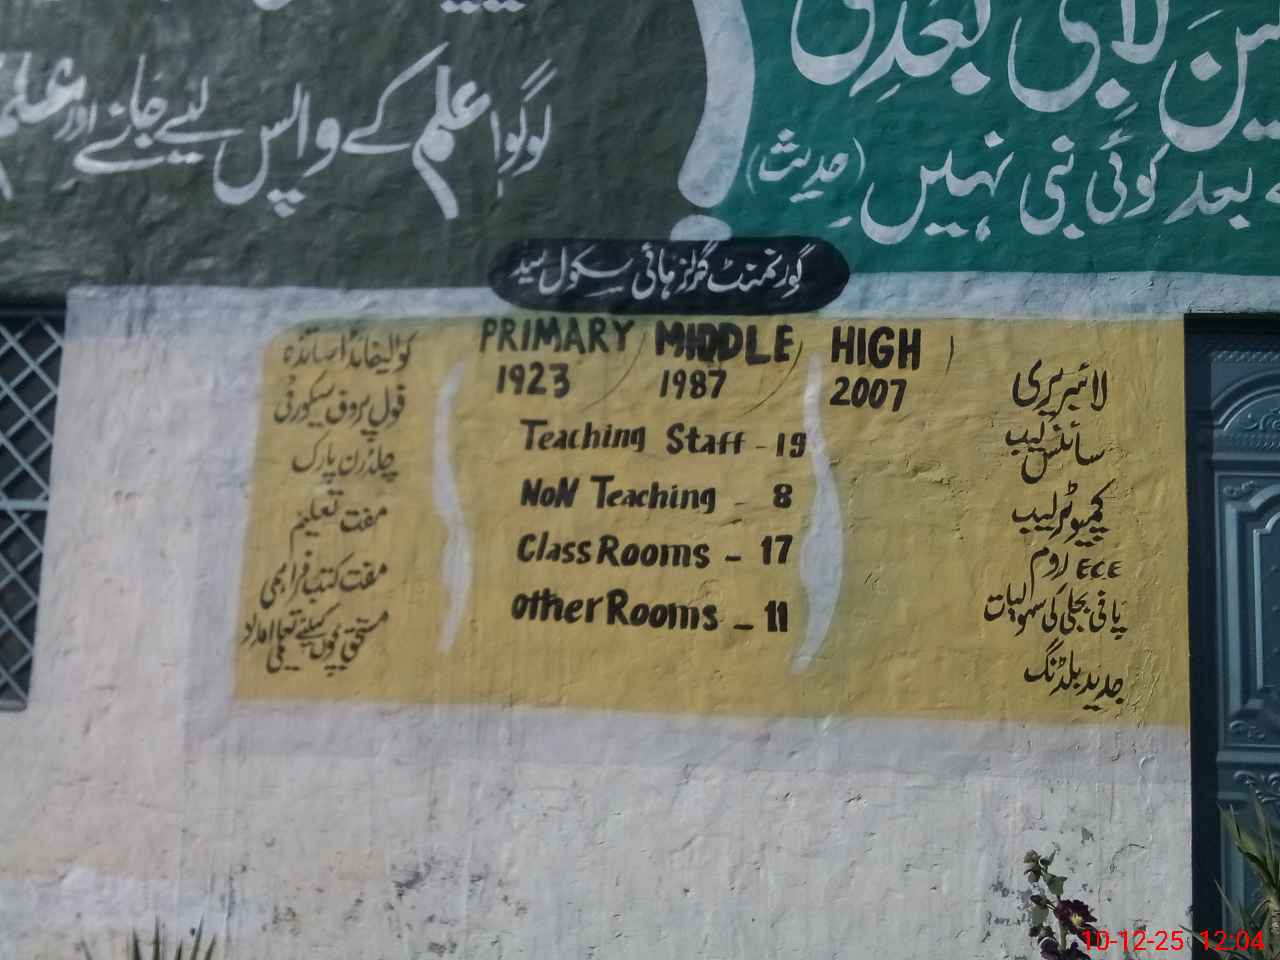 لوگو! علم کے واپس لیے جانے اور علم
لا نبی بعدی
بعد کوئی نبی نہیں (حدیث)
گورنمنٹ گرلز ہائی سکول سید
PRIMARY MIDDLE HIGH
1923 1987 2007
Teaching Staff - 19
NoN Teaching - 8
Class Rooms - 17
other Rooms - 11
کوالیفائڈ اساتذہ
فول پروف سیکورٹی
چلڈرن پارک
مفت تعلیم
مفت کتب فراہمی
مستحق بچوں کیلئے تعلیمی امداد
لائبریری
سائنس لیب
کمپیوٹر لیب
ECE روم
پانی بجلی کی سہولیات
جدید بلڈنگ
10-12-25 12:04